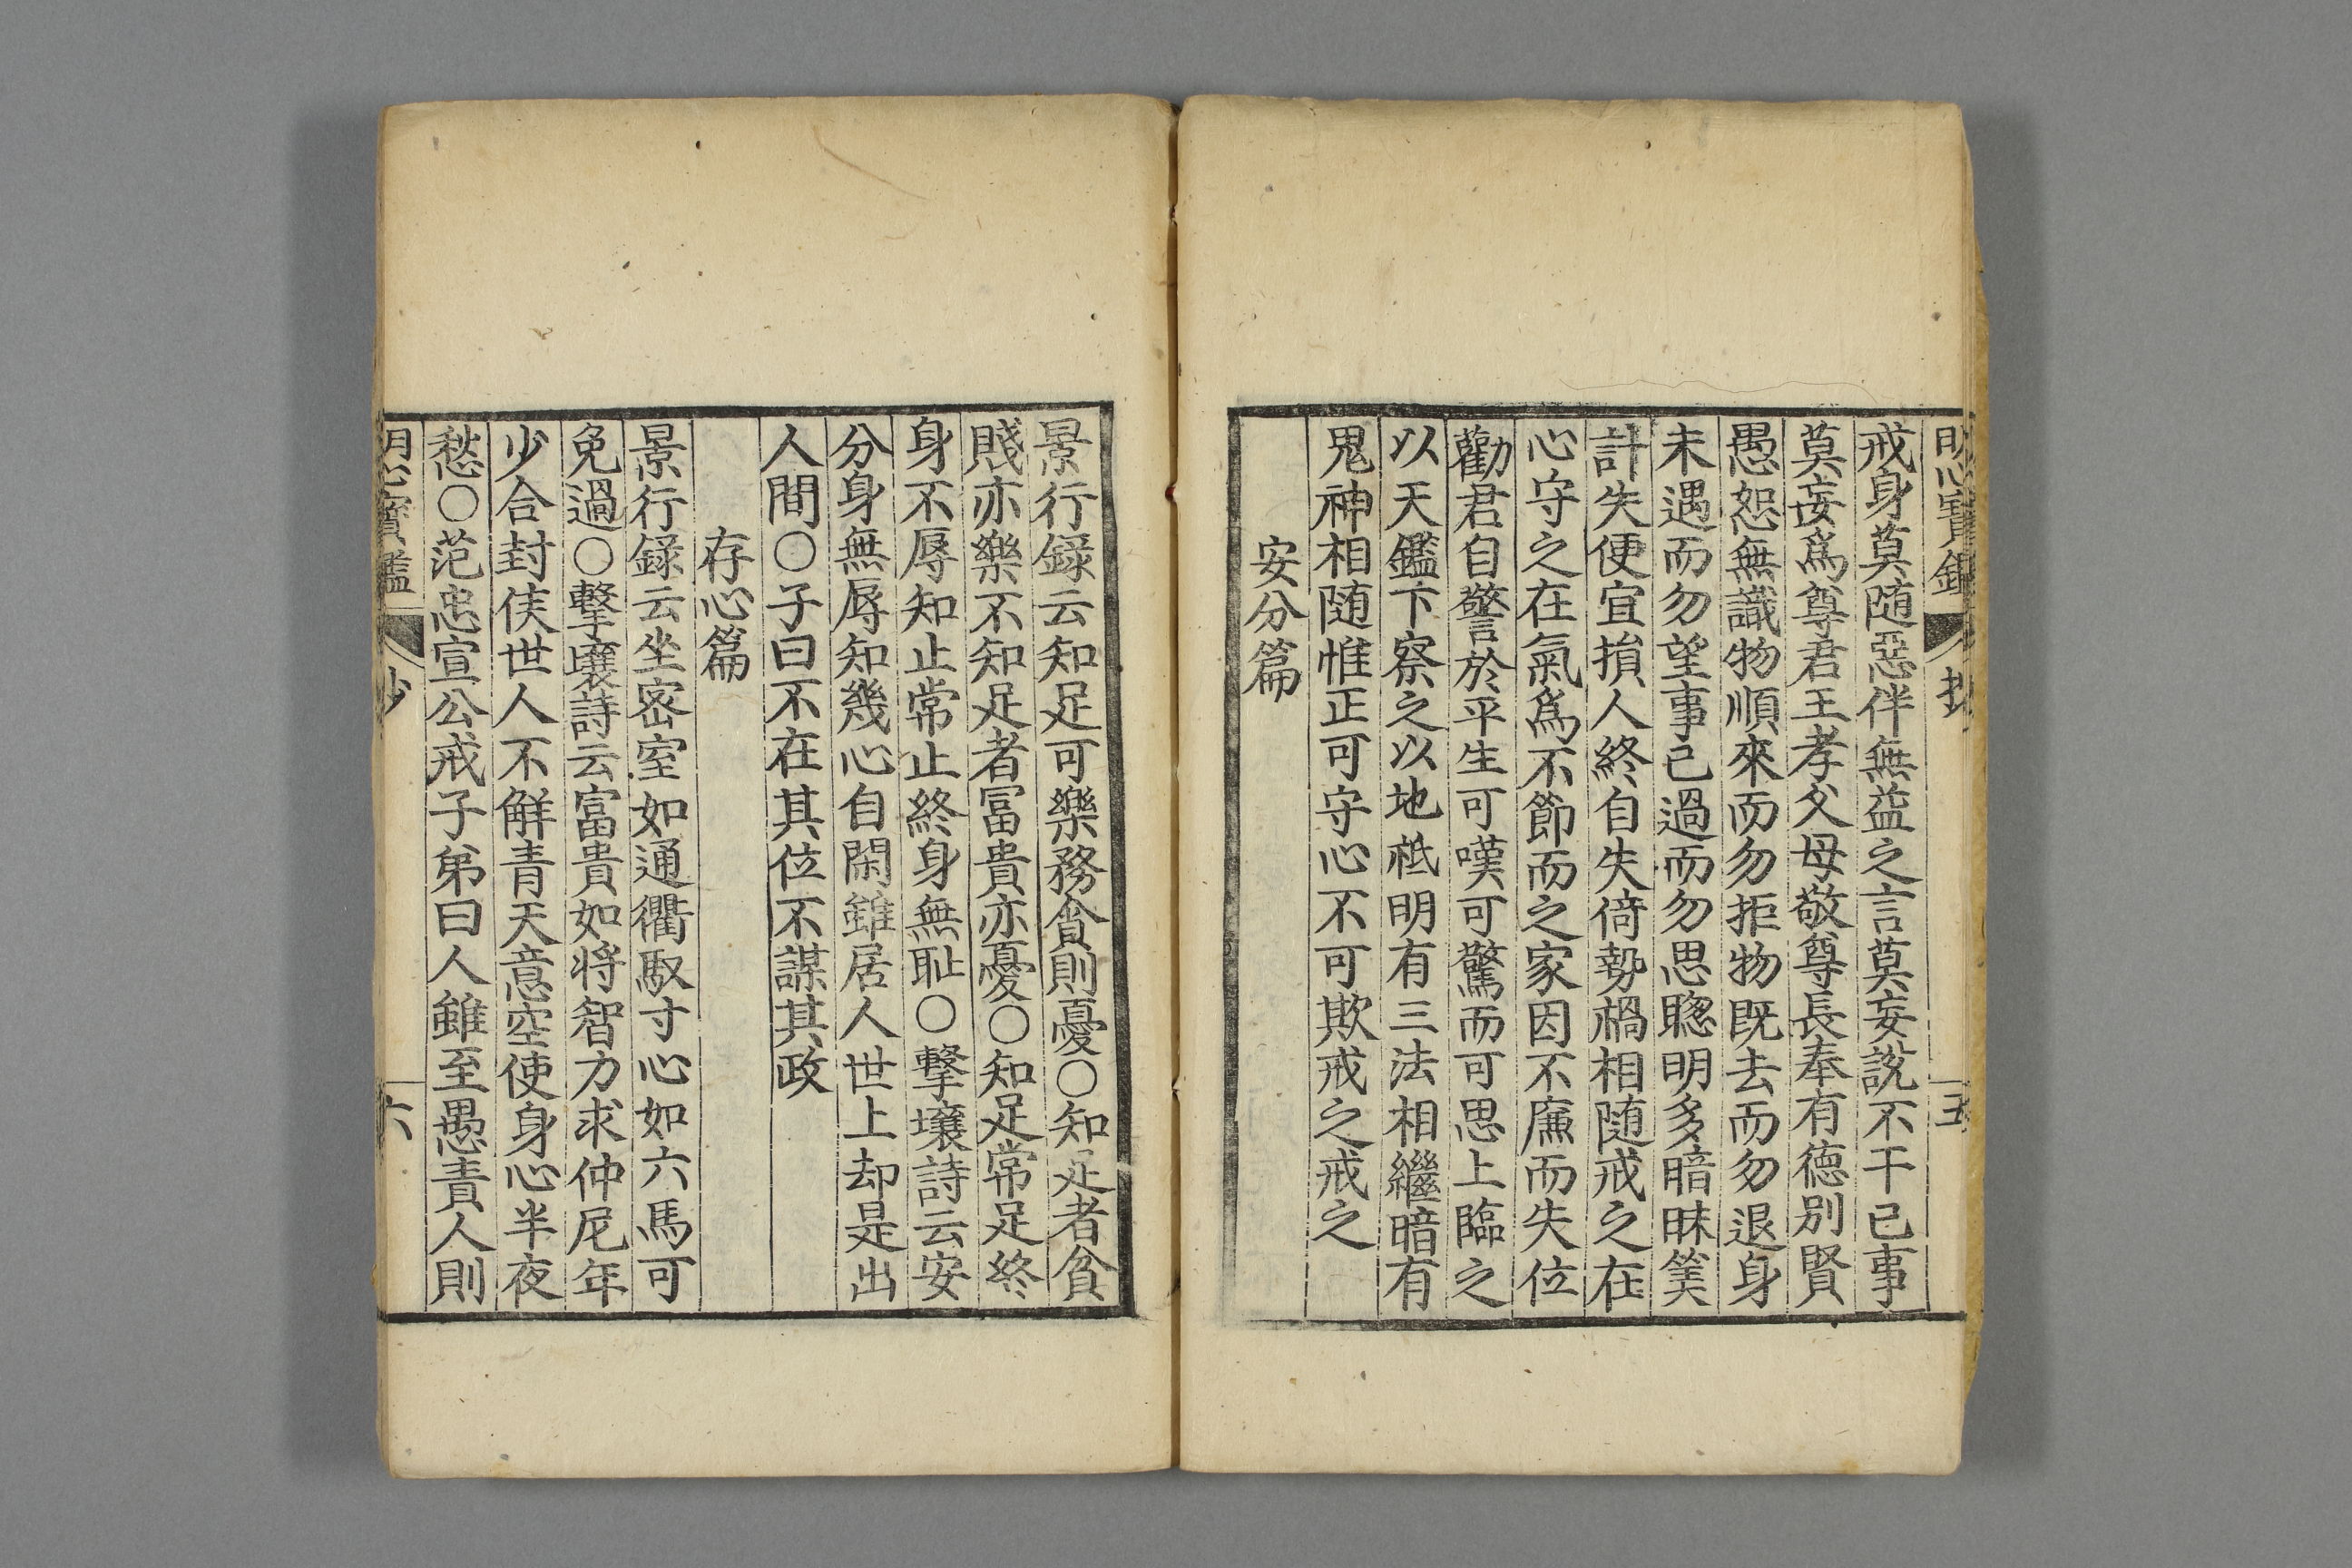 明心寶鑑 抄 五
戒身莫随惡伴無益之言莫妄說不干己事
莫妄爲尊君王孝父母敬尊長奉有德別賢
愚恕無識物順來而勿拒物既去而勿退身
未遇而勿望事己過而勿思聦明多暗昧筭
計失便宜損人終自失倚勢禍相随戒之在
心守之在氣爲不節而之家因不廉而失位
勸君自警於平生可嘆可驚而可思上臨之
以天鑑下察之以地祗明有三法相繼暗有
鬼神相随惟正可守心不可欺戒之戒之
安分篇
景行録云知足可樂務貪則憂〇知足者貧
賤亦樂不知足者冨貴亦憂〇知足常足終
身不辱知止常止終身無耻〇擊壤詩云安
分身無辱知幾心自閑雖居人世上却是出
人間〇子曰不在其位不謀其政
存心篇
景行録云坐密室如通衢馭寸心如六馬可
免過〇擊壤詩云富貴如将智力求仲尼年
少合封侯世人不解青天意空使身心半夜
愁〇范忠宣公戒子弟曰人雖至愚責人則
明心寶鑑 抄 六